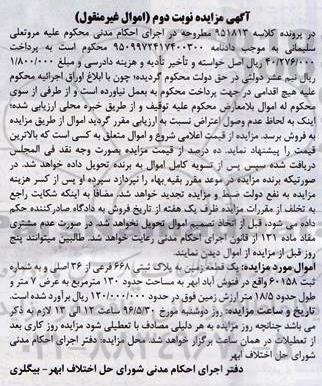 آگهی مزایده نوبت دوم (اموال غیرمنقول)
در پرونده کلاسه ۹۵۱۸۱۳ مطروحه در اجرای احکام مدنی محکوم علیه مروتعلی
سلیمانی به موجب دادنامه ۹۵۰۹۹۷۲۴۱۷۴۰۰۳۰۰ محکوم است به پرداخت
۴۰/۲۷۶/۰۰۰ ریال اصل خواسته و تأخیر تأدیه و هزینه دادرسی و مبلغ ۱/۸۰۰/۰۰۰
ریال نیم عشر دولتی در حق دولت محکوم گردیده؛ چون با ابلاغ اوراق اجرائیه محکوم
علیه هیچ اقدامی در جهت پرداخت محکوم به بعمل نیاورده است و از طرفی از سوی
محکوم له اموال بلامعارض محکوم علیه توقیف و از طریق خبره محلی ارزیابی شده؛
اینک به لحاظ عدم وصول اعتراض نسبت به ارزیابی مقرر گردید اموال از طریق مزایده
به فروش برسد. مزایده از قیمت اعلامی شروع و اموال متعلق به کسی است که بالاترین
قیمت را پیشنهاد نماید. ده درصد از قیمت مزایده بصورت وجه نقد فی المجلس
دریافت شده سپس پس از تسویه کامل اموال به برنده تحویل داده خواهد شد. در
صورتیکه برنده مزایده در موعد مقرر بقیه بهاء را نپردازد سپرده او پس از کسر هزینه
مزایده به نفع دولت ضبط و مزایده تجدید خواهد شد. مضافاً به اینکه شکایت راجع
به تخلف از مقررات مزایده ظرف یک هفته از تاریخ فروش به دادگاه صادرکننده حکم
داده می شود، قبل از اتخاذ تصمیم اموال تحویل نخواهد شد. در صورت عدم مشتری
مفاد ماده ۱۳۱ از قانون اجرای احکام مدنی رعایت خواهد شد. طالبین میتوانند پنج
روز قبل از مزایده از اموال دیدن نمایند.
اموال مورد مزایده: یک قطعه زمین به پلاک ثبتی ۶۶۸ فرعی از ۳۶ اصلی و به شماره
ثبت ۶۰۱۵۸ واقع در فنوش آباد ابهر به مساحت حدود ۱۳۰ مترمربع به عرض ۷ متر و
طول حدود ۱۸/۵ متر ارزش زمین فوق در حدود ۱۲۰/۰۰۰/۰۰۰ ریال برآورد شده است.
تاریخ و ساعت مزایده: روز دوشنبه مورخ ۹۶/۵/۳۰ ساعت ۱۲ الی ۱۳ لازم به ذکر
می باشد چنانچه روز مزایده به هر دلیلی مصادف با تعطیلی شود مزایده روز کاری بعد
از تعطیلات در همان ساعت برگزار خواهد شد. محل مزایده: دفتر اجرای احکام مدنی
شورای حل اختلاف ابهر
دفتر اجرای احکام مدنی شورای حل اختلاف ابهر - بیگلری